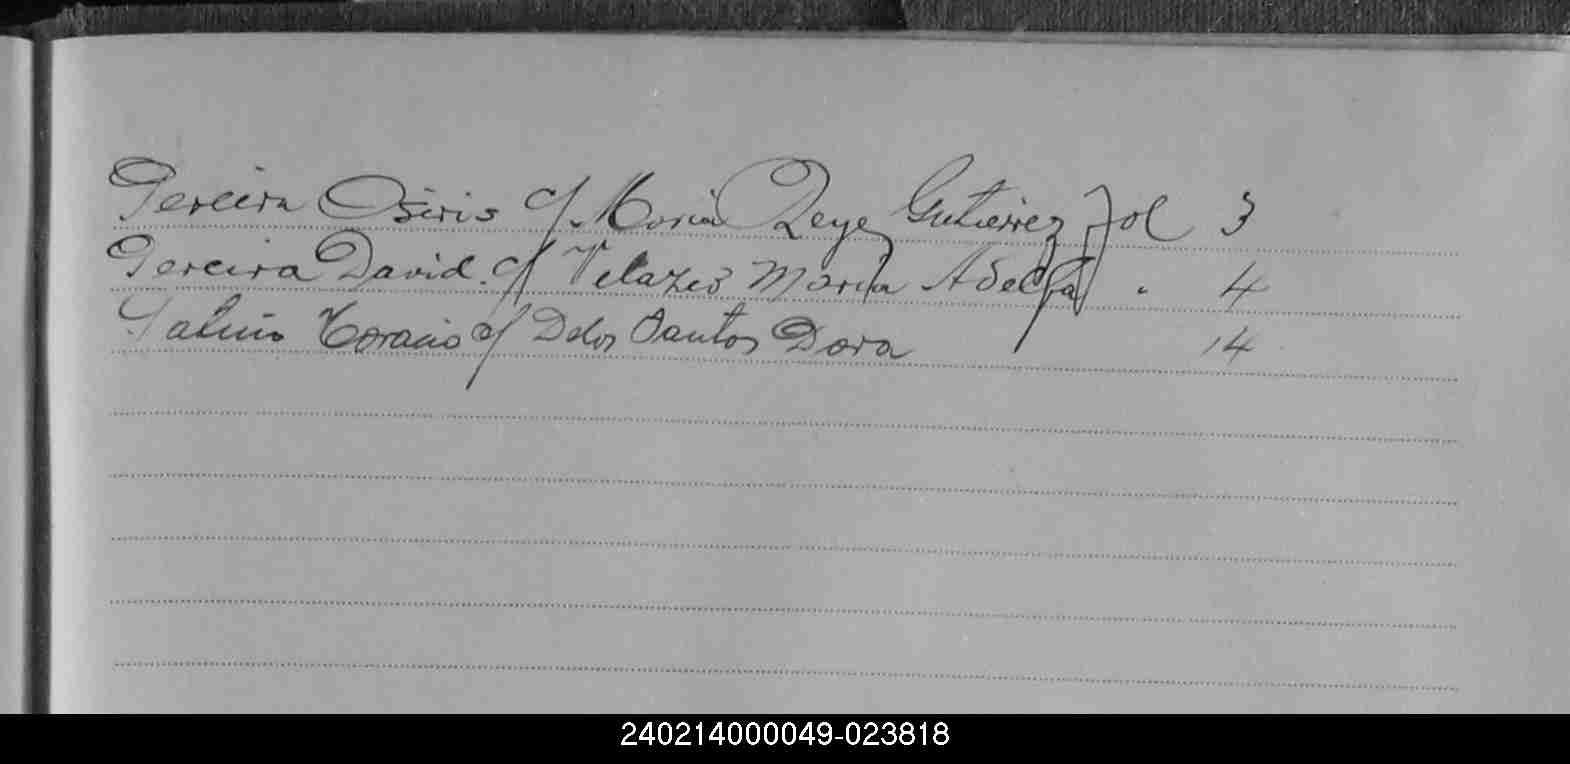 Pereira Osiris c/ Maria Reye Gutierrez Fol 3
Pereira David. c/ Velazco Maria Adelfa " 4
Horacio c/ Delos Santos Dora 14
240214000049-023818